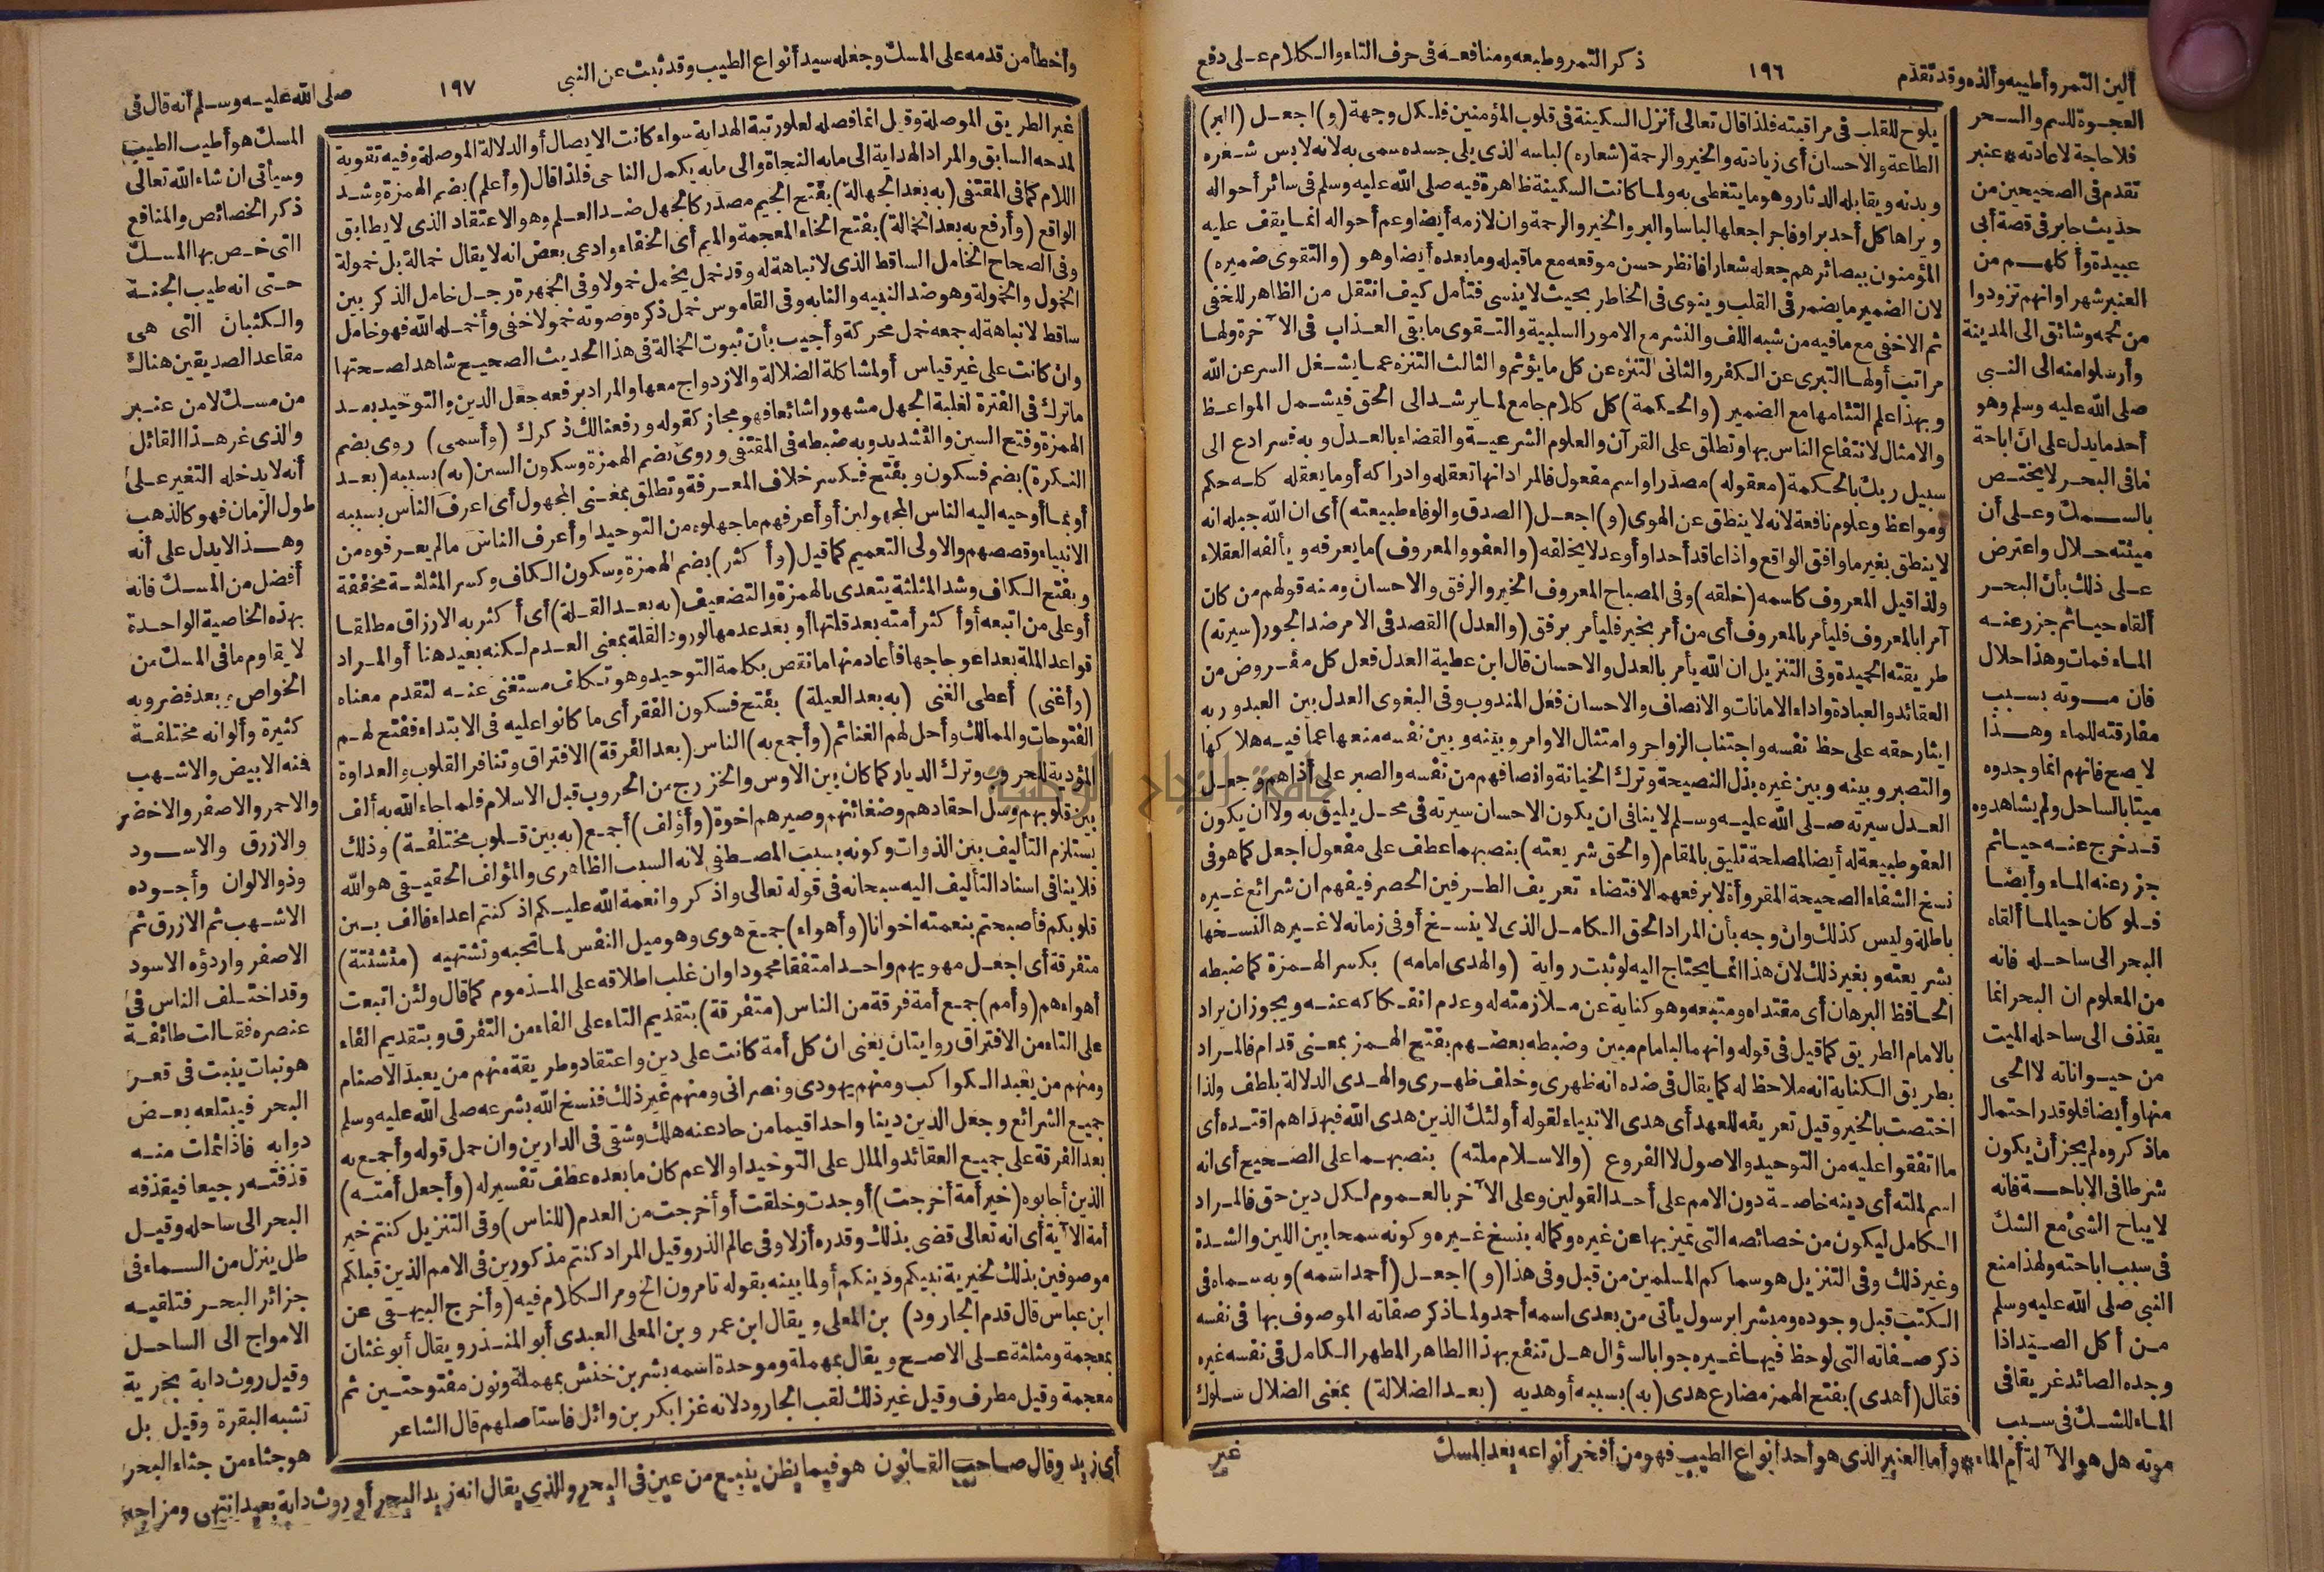 ألين التمر وأطيبه وألذه وقد تقدم
١٩٦
ذكر التمر وطبعه ومنافعه فى حرف التاء والكلام على دفع
العجوة للسم والسحر
فلا حاجة لاعادته * عنبر
تقدم فى الصحيحين من
حديث جابر فى قصة أبى
عبيدة وأكلهم من
العنبر شهرا وانهم تزودوا
من لحمه وشائق الى المدينة
وأرسلوا منه الى النبى
صلى الله عليه وسلم وهو
أحد ما يدل على ان اباحة
ما فى البحر لا يختص
بالسمك وعلى أن
ميتته حلال واعترض
على ذلك بأن البحر
ألقاه حيا ثم جزر عنه
الماء فمات وهذا حلال
فان موته بسبب
مفارقته للماء وهذا
لا يصح فانهم انما وجدوه
ميتا بالساحل ولم يشاهدوه
قد خرج عنه حيا ثم
جزر عنه الماء وأيضا
فلو كان حيا لما ألقاه
البحر الى ساحله فانه
من المعلوم ان البحر انما
يقذف الى ساحله الميت
من حيواناته لا الحى
منها وأيضا فلو قدر احتمال
ما ذكروه لم يجز أن يكون
شرطا فى الاباحة فانه
لا يباح الشئ مع الشك
فى سبب اباحته ولهذا منع
النبى صلى الله عليه وسلم
من أكل الصيد اذا
وجده الصائد غريقا فى
الماء للشك فى سبب
موته هل هو الآلة أم الماء * وأما العنبر الذى هو أحد أنواع الطيب فهو من أفخر أنواعه بعد المسك
يلوح للقلب فى مراقبته فلذا قال تعالى أنزل السكينة فى قلوب المؤمنين فلكل وجهة (و) اجعل (البر)
الطاعة والاحسان أى زيادته والخير والرحمة (شعاره) لباسه الذى يلى جسده سمى به لانه لابس شعره
وبدنه ويقابله الدثار وهو ما يتغطى به ولما كانت السكينة ظاهرة فيه صلى الله عليه وسلم فى سائر أحواله
ويراها كل أحد بر او فاجر اجعلها لباسا والبر والخير والرحمة وان لازمه أيضا وعم أحواله انما يقف عليه
المؤمنون ببصائرهم جعله شعارا فانظر حسن موقعه مع ما قبله وما بعده أيضا وهو (والتقوى ضميره)
لان الضمير ما يضمر فى القلب وينوى فى الخاطر بحيث لا ينسى فتأمل كيف انتقل من الظاهر للخفى
ثم الاخفى مع ما فيه من شبه اللف والنشر مع الامور السلبية والتقوى ما بقى العذاب فى الآخرة ولها
مراتب أولها التبرى عن الكفر والثانى التنزه عن كل ما يؤثم والثالث التنزه عما يشغل السر عن الله
وبهذا علم التئامها مع الضمير (والحكمة) كل كلام جامع لما يرشد الى الحق فيشمل المواعظ
والامثال لانتفاع الناس بها وتطلق على القرآن والعلوم الشرعية والقضاء بالعدل وبه فسر ادع الى
سبيل ربك بالحكمة (معقوله) مصدر او اسم مفعول فالمراد انها تعقله وادراكه أو ما يعقله كله حكم
ومواعظ وعلوم نافعة لانه لا ينطق عن الهوى (و) اجعل (الصدق والوفاء طبيعته) أى ان الله جبله انه
لا ينطق بغير ما وافق الواقع واذا عاقد أحدا وأوعد لا يخلفه (والعفو والمعروف) ما يعرفه ويألفه العقلاء
ولذا قيل المعروف كاسمه (خلقه) وفى المصباح المعروف الخير والرفق والاحسان ومنه قولهم من كان
آمرا بالمعروف فليأمر بالمعروف أى من أمر بخير فليأمر برفق (والعدل) القصد فى الامر ضد الجور (سيرته)
طريقته الحميدة وفى التنزيل ان الله يأمر بالعدل والاحسان قال ابن عطية العدل فعل كل مفروض من
العقائد والعبادة واداء الامانات والانصاف والاحسان فعل المندوب وفى البغوى العدل بين العبد وربه
ايثار حقه على حظ نفسه واجتناب الزواجر وامتثال الاوامر وبينه وبين نفسه منعها عما فيه هلاكها
والتصبر وبينه وبين غيره بذل النصيحة وترك الخيانة وانصافهم من نفسه والصبر على أذاهم وجعل
العدل سيرته صلى الله عليه وسلم لا ينافى ان يكون الاحسان سيرته فى محل يليق به ولا أن يكون
العفو طبيعة له أيضا لمصلحة تليق بالمقام (والحق شريعته) بنصبهما عطف على مفعول اجعل كما هو فى
نسخ الشفاء الصحيحة المقروأة لا برفعهما لاقتضاء تعريف الطرفين الحصر فيفهم ان شرائع غيره
باطلة وليس كذلك وان وجه بأن المراد الحق الكامل الذى لا ينسخ أو فى زمانه لا غيرها لنسخها
بشريعته وبغير ذلك لان هذا انما يحتاج اليه لو ثبت رواية (والهدى امامه) بكسر الهمزة كما ضبطه
الحافظ البرهان أى مقتداه ومتبعه وهو كناية عن ملازمته له وعدم انفكاكه عنه ويجوز ان يراد
بالامام الطريق كما قيل فى قوله وانهما لبامام مبين وضبطه بعضهم بفتح الهمز بمعنى قدام فالمراد
بطريق الكناية انه ملاحظ له كما يقال فى ضده انه ظهرى وخلف ظهرى والهدى الدلالة بلطف ولذا
اختصت بالخير وقيل تعريفه للعهد أى هدى الانبياء لقوله أولئك الذين هدى الله فبهداهم اقتده أى
ما اتفقوا عليه من التوحيد والاصول لا الفروع (والاسلام ملته) بنصبهما على الصحيح أى انه
اسم لملته أى دينه خاصة دون الامم على أحد القولين وعلى الآخر بالعموم لكل دين حق فالمراد
الكامل ليكون من خصائصه التى تميز بها عن غيره وكماله بنسخ غيره وكونه سمحا بين اللين والشدة
وغير ذلك وفى التنزيل هو سماكم المسلمين من قبل وفى هذا (و) اجعل (أحمد اسمه) وبه سماه فى
الكتب قبل وجوده ومبشرا برسول يأتى من بعدى اسمه أحمد ولما ذكر صفاته الموصوف بها فى نفسه
ذكر صفاته التى لوحظ فيها غيره جوابا لسؤال هل تنفع بهذا الطاهر المطهر الكامل فى نفسه غيره
فقال (أهدى) بفتح الهمز مضارع هدى (به) بسببه أو هديه (بعد الضلالة) بمعنى الضلال سلوك
غير
وأخطأ من قدمه على المسك وجعله سيد أنواع الطيب وقد ثبت عن النبى
١٩٧
صلى الله عليه وسلم أنه قال فى
غير الطريق الموصلة وقيل انما فصله لعلو رتبة الهداية سواء كانت الايصال أو الدلالة الموصلة وفيه تقوية
لمدحه السابق والمراد الهداية الى ما به النجاة والى ما به يكمل الناجى فلذا قال (وأعلم) بضم الهمزة وشد
اللام كما فى المقتفى (به بعد الجهالة) بفتح الجيم مصدر كالجهل ضد العلم وهو الاعتقاد الذى لا يطابق
الواقع (وأرفع به بعد الخمالة) بفتح الخاء المعجمة والميم أى الخفاء وادعى بعض انه لا يقال خمالة بل خمولة
وفى الصحاح الخامل الساقط الذى لا نباهة له وقد خمل يخمل خمولا وفى الجمهرة رجل خامل الذكر بين
الخمول والخمولة وهو ضد النبيه والنابه وفى القاموس خمل ذكره وصوته خمولا خفى وأخمله الله فهو خامل
ساقط لا نباهة له جمعه خمل محركة وأجيب بأن ثبوت الخمالة فى هذا الحديث الصحيح شاهد لصحتها
وان كانت على غير قياس أو لمشاكلة الضلالة والازدواج معها والمراد برفعه جعل الدين والتوحيد بعد
ما ترك فى الفترة لغلبة الجهل مشهورا شائعا فهو مجاز كقوله ورفعنا لك ذكرك (وأسمى) روى بضم
الهمزة وفتح السين والتشديد وبه ضبطه فى المقتفى وروى بضم الهمزة وسكون السين (به) بسببه (بعد
النكرة) بضم فسكون وبفتح فكسر خلاف المعرفة وتطلق بمعنى المجهول أى اعرف الناس بسببه
أو بما أوحيه اليه الناس المجهولين أو أعرفهم ما جهلوه من التوحيد او أعرف الناس ما لم يعرفوه من
الانبياء وقصصهم والاولى التعميم كما قيل (وأكثر) بضم الهمزة وسكون الكاف وكسر المثلثة مخففة
وبفتح الكاف وشد المثلثة يتعدى بالهمزة والتضعيف (به بعد القلة) أى أكثر به الارزاق مطلقا
أو على من اتبعه أو أكثر أمته بعد قلتها أو بعد عدمها لورود القلة بمعنى العدم لكنه بعيد هنا أو المراد
قواعد الملة بعد اعوجاجها فأعاد منها ما نقص بكلمة التوحيد وهو تكلف مستغنى عنه لتقدم معناه
(وأغنى) أعطى الغنى (به بعد العيلة) بفتح فسكون الفقر أى ما كانوا عليه فى الابتداء ففتح لهم
الفتوحات والممالك وأحل لهم الغنائم (وأجمع به) الناس (بعد الفرقة) الافتراق وتنافر القلوب والعداوة
المؤدية للحروب وترك الديار كما كان بين الاوس والخزرج من الحروب قبل الاسلام فلما جاء الله به ألف
بين قلوبهم وسل احقادهم وضغائنهم وصيرهم اخوة (وأؤلف) أجمع (به بين قلوب مختلفة) وذلك
يستلزم التأليف بين الذوات وكونه بسبب المصطفى لانه السبب الظاهرى والمؤلف الحقيقى هو الله
فلا ينافى اسناد التأليف اليه سبحانه فى قوله تعالى واذكروا نعمة الله عليكم اذ كنتم اعداء فالف بين
قلوبكم فأصبحتم بنعمته اخوانا (وأهواء) جمع هوى وهو ميل النفس لما تحبه وتشتهيه (متشتتة)
متفرقة أى اجعل مهويهم واحدا متفقا محمودا وان غلب اطلاقه على المذموم كما قال ولئن اتبعت
أهواءهم (وأمم) جمع أمة فرقة من الناس (متفرقة) بتقديم التاء على الفاء من التفرق وبتقديم الفاء
على التاء من الافتراق روايتان يعنى ان كل أمة كانت على دين واعتقاد وطريقة منهم من يعبد الاصنام
ومنهم من يعبد الكواكب ومنهم يهودى ونصرانى ومنهم غير ذلك فنسخ الله بشرعه صلى الله عليه وسلم
جميع الشرائع وجعل الدين دينا واحدا قيما من حاد عنه هلك وشقى فى الدارين وان حمل قوله وأجمع به
بعد الفرقة على جميع العقائد والملل على التوحيد او الاعم كان ما بعده عطف تفسير له (وأجعل أمته)
الذين أجابوه (خير أمة أخرجت) أوجدت وخلقت أو أخرجت من العدم (للناس) وفى التنزيل كنتم خير
أمة الآية أى انه تعالى قضى بذلك وقدره أزلا وفى عالم الذر وقيل المراد كنتم مذكورين فى الامم الذين قبلكم
موصوفين بذلك لخيرية نبيكم ودينكم أو لما بينه بقوله تامرون الخ ومر الكلام فيه (وأخرج البيهقى عن
ابن عباس قال قدم الجارود) بن المعلى ويقال ابن عمرو بن المعلى العبدى أبو المنذر ويقال أبو غثان
بمعجمة ومثلثة على الاصح ويقال بمهملة وموحدة اسمه بشر بن خنش بمهملة ونون مفتوحتين ثم
معجمة وقيل مطرف وقيل غير ذلك لقب الجارود لانه غزا بكر بن وائل فاستاصلهم قال الشاعر
المسك هو أطيب الطيب
وسيأتى ان شاء الله تعالى
ذكر الخصائص والمنافع
التى خص بها المسك
حتى انه طيب الجنة
والكثبان التى هى
مقاعد الصديقين هناك
من مسك لا من عنبر
والذى غر هذا القائل
أنه لا يدخله التغير على
طول الزمان فهو كالذهب
وهذا لا يدل على أنه
أفضل من المسك فانه
بهذه الخاصية الواحدة
لا يقاوم ما فى المسك من
الخواص وبعد فضروبه
كثيرة وألوانه مختلفة
فمنه الابيض والاشهب
والاحمر والاصفر والاخضر
والازرق والاسود
وذو الالوان وأجوده
الاشهب ثم الازرق ثم
الاصفر وأردؤه الاسود
وقد اختلف الناس فى
عنصره فقالت طائفة
هو نبات ينبت فى قعر
البحر فيبتلعه بعض
دوابه فاذا ثملت منه
قذفته رجيعا فيقذفه
البحر الى ساحله وقيل
طل ينزل من السماء فى
جزائر البحر فتلقيه
الامواج الى الساحل
وقيل روث دابة بحرية
تشبه البقرة وقيل بل
هو جثاء من جثاء البحر
أى زبد وقال صاحب القانون هو فيما يظن ينبع من عين فى البحر والذى يقال انه زبد البحر أو روث دابة بعيد انتهى ومزاجه
جامعة النجاح الوطنية